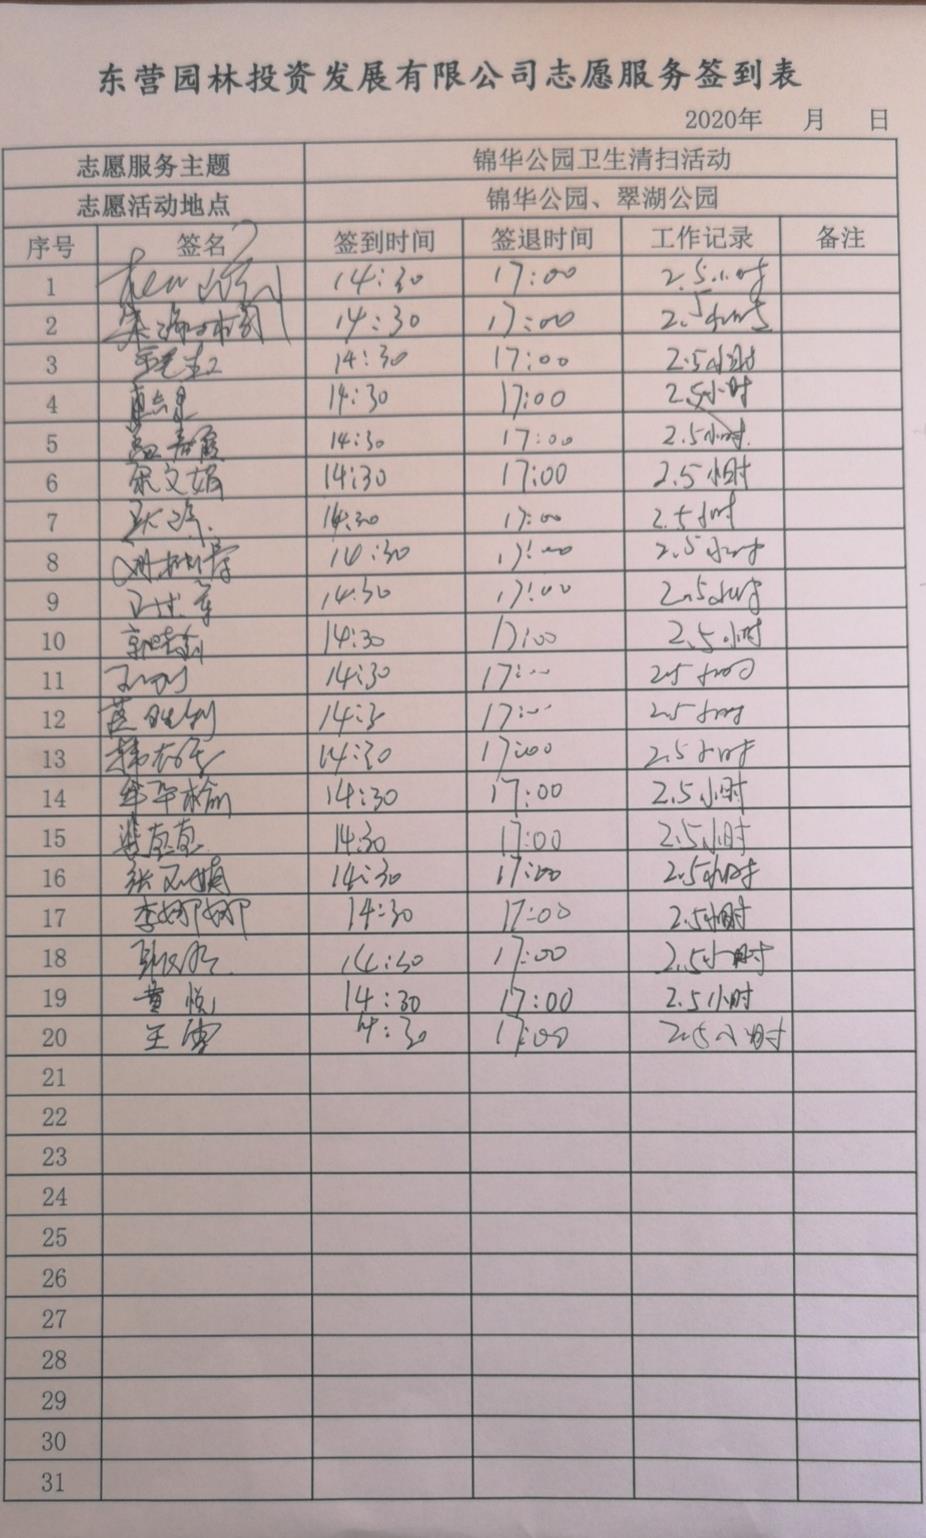 东营园林投资发展有限公司志愿服务签到表
2020年 月 日
志愿服务主题 锦华公园卫生清扫活动
志愿活动地点 锦华公园、翠湖公园
序号 签名 签到时间 签退时间 工作记录 备注
1 14:30 17:00 2.5小时
2 14:30 17:00 2.5小时
3 14:30 17:00 2.5小时
4 14:30 17:00 2.5小时
5 14:30 17:00 2.5小时
6 宋文娟 14:30 17:00 2.5小时
7 14:30 17:00 2.5小时
8 14:30 17:00 2.5小时
9 14:30 17:00 2.5小时
10 14:30 17:00 2.5小时
11 14:30 17:00 2.5小时
12 14:3 17:00 2.5小时
13 14:30 17:00 2.5小时
14 14:30 17:00 2.5小时
15 14:30 17:00 2.5小时
16 14:30 17:00 2.5小时
17 李娜娜 14:30 17:00 2.5小时
18 14:30 17:00 2.5小时
19 黄悦 14:30 17:00 2.5小时
20 王雪 14:30 17:00 2.5小时
21
22
23
24
25
26
27
28
29
30
31